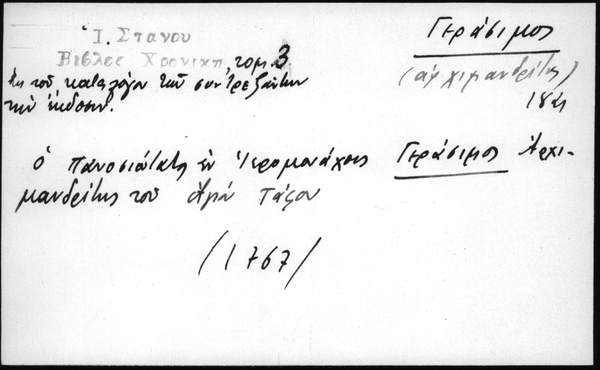 Ἰ. Στανου
Βιβλος Χρονικη, τομ. 3
Ἐκ τοῦ καταλόγου τῶν συνδρεξάντων
τὴν ἔκδοσιν.
Γεράσιμος
(ἀρχιμανδρίτης)
18ος
ὁ πανοσιώτατος ἐν Ἱερομονάχοις Γεράσιμος Ἀρχι-
μανδρίτης τοῦ Ἁγίου Τάφου
(1767)